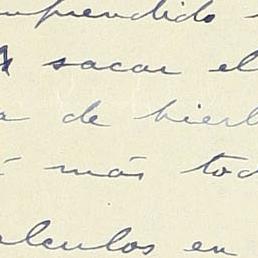 mprendido
sacar el
a de hier
más tod
alculos en